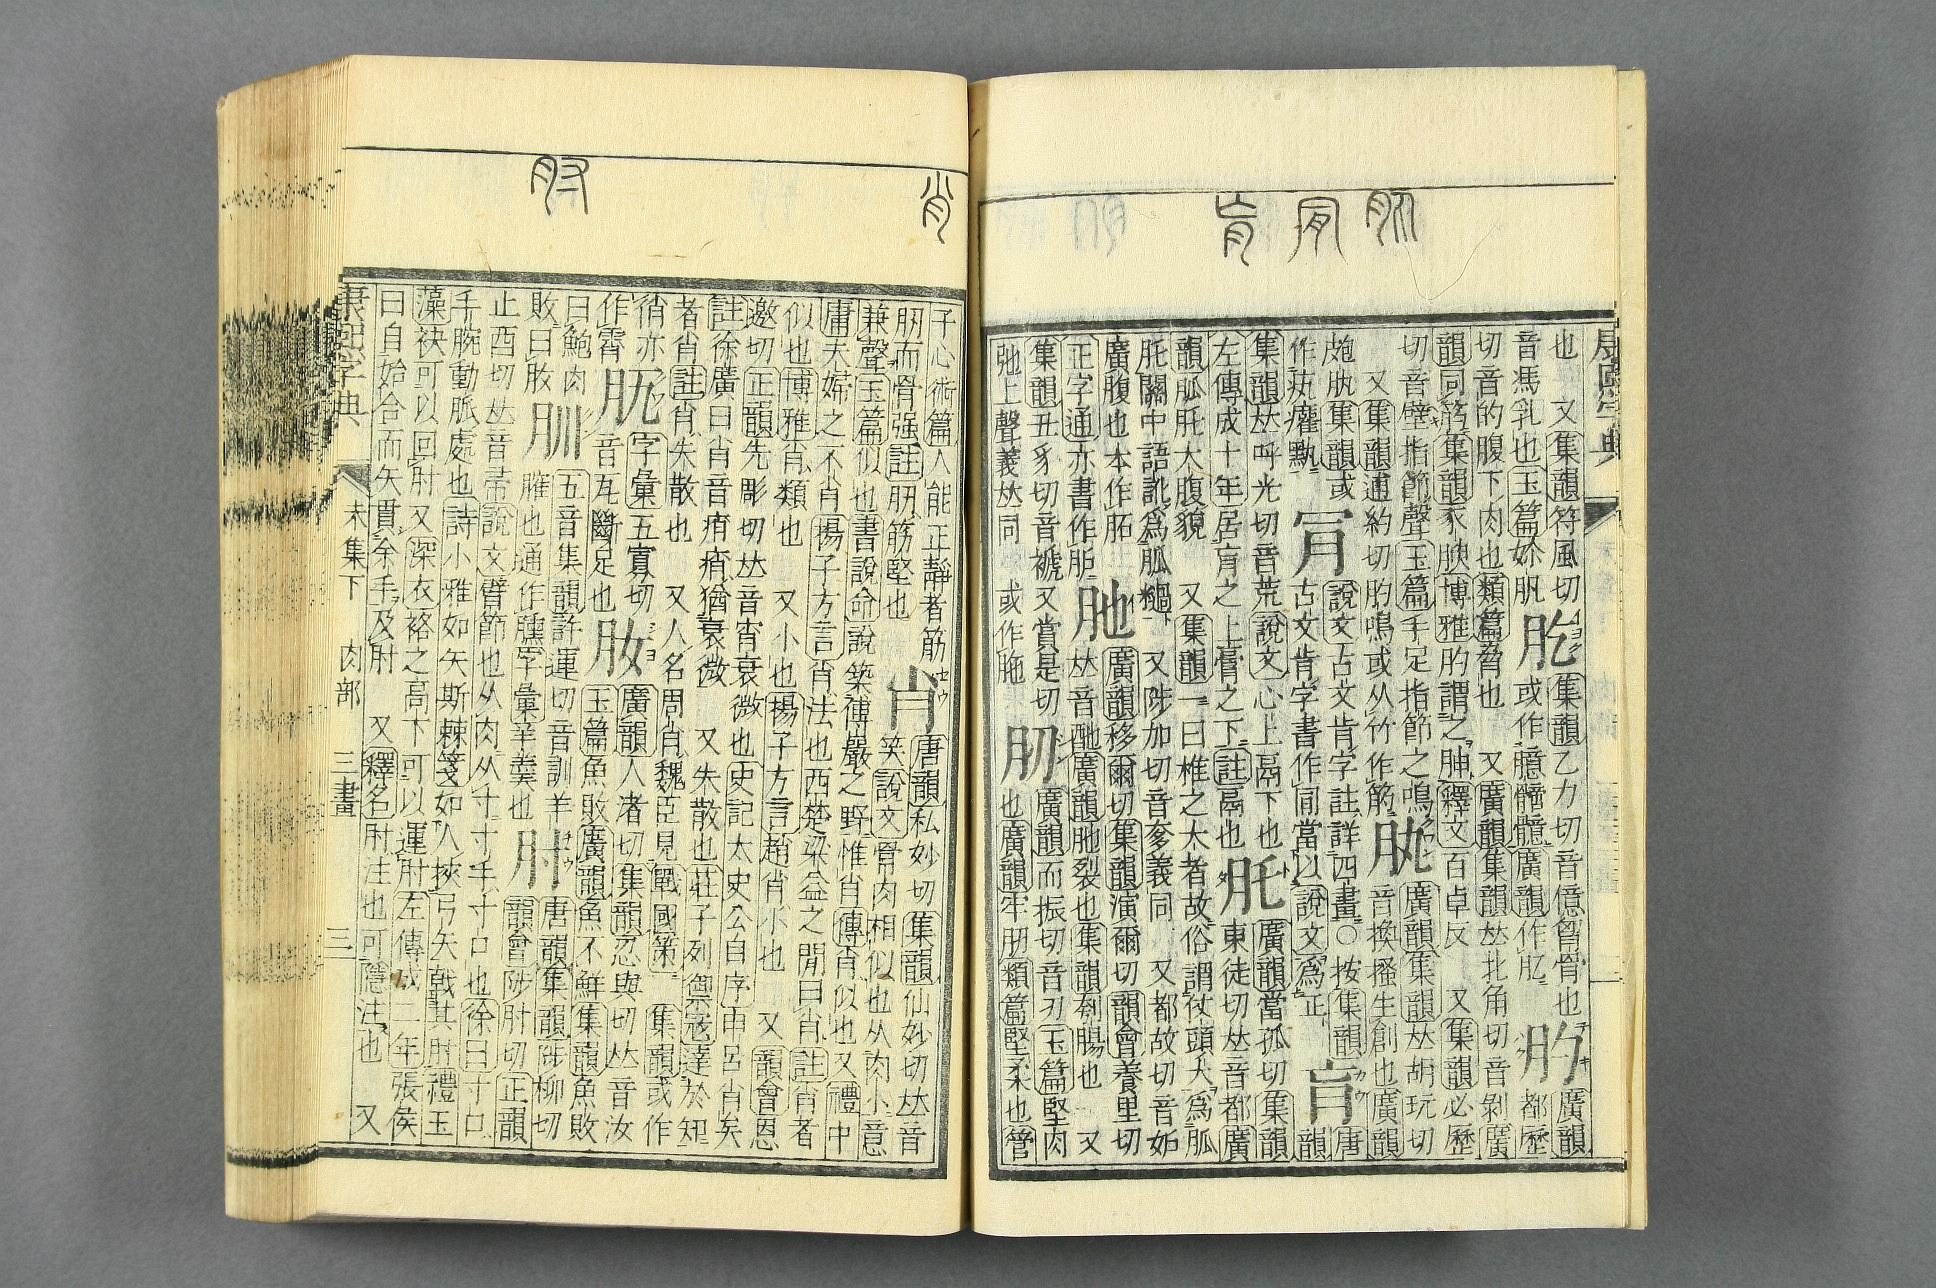 康熙字典
也 又集韻符風切
音馮乳也玉篇妳肌
肊
集韻乙力切音億胷骨也
或作臆廣韻作肊
肑
廣韻
都歷
切音的腹下肉也類篇脅也 又廣韻集韻𠀤北角切音剝廣
韻同筋集韻豕腴博雅肑謂之䏚釋文百卓反 又集韻必歷
切音壁指節聲玉篇手足指節之鳴
又集韻逋約切肑鳴或从竹作筋
肒
廣韻集韻𠀤胡玩切
音換搔生創也廣韻
皰肒集韻或
作
肎
說文古文肯字註詳四畫○按集韻
古文肯字書作肎當以說文爲正
肓
唐
韻
集韻𠀤呼光切音荒說文心上鬲下也
左傳成十年居肓之上膏之下註鬲也
䏙
廣韻當孤切集韻
東徒切𠀤音都廣
韻胍䏙大腹貌 又集韻一曰椎之大者故俗謂仗頭大爲胍
䏙關中語訛爲胍檛 又陟加切音爹義同 又都故切音妒
廣腹也本作
正字通亦書作
肔
廣韻移爾切集韻演爾切韻會養里切
𠀤音酏廣韻肔裂也集韻刳腸也 又
集韻丑豸切音褫又賞是切
肔上聲義𠀤同 或作胣
肕
廣韻而振切音刃玉篇堅肉
也廣韻牢肕類篇堅柔也管
肖
子心術篇人能正靜者筋
肕而骨强註肕筋堅也
肖
唐韻私妙切集韻仙妙切𠀤音
笑說文骨肉相似也从肉小意
兼聲玉篇似也書說命說築傅巖之野惟肖傳肖似也又禮中
庸夫婦之不肖揚子方言肖法也西楚梁益之閒曰肖註肖者
似也博雅肖類也 又小也揚子方言趙肖小也 又韻會思
邀切正韻先彫切𠀤音宵衰微也史記太史公自序申呂肖矣
註徐廣曰肖音痟痟猶衰微 又失散也莊子列禦寇達於知
者肖註肖失散也 又人名周肖魏臣見戰國策 集韻或作
亦
作霄
字彙五寡切
音瓦斷足也
肗
廣韻人渚切集韻忍與切𠀤音汝
玉篇魚敗廣韻魚不鮮集韻魚敗
曰鮑肉
敗曰肗
五音集韻許運切音訓羊
臐也通作臐字彙羊羹也
肘
唐韻集韻陟柳切
韻會陟肘切正韻
止酉切𠀤音帚說文臂節也从肉从寸寸手寸口也徐曰寸口
手腕動脈處也詩小雅如矢斯棘箋如人挾弓矢戟其肘禮玉
藻袂可以回肘又深衣袼之高下可以運肘左傳成二年張侯
曰自始合而矢貫余手及肘 又釋名肘注也可隱注也 又
康熙字典 未集下 肉部 三畫 三